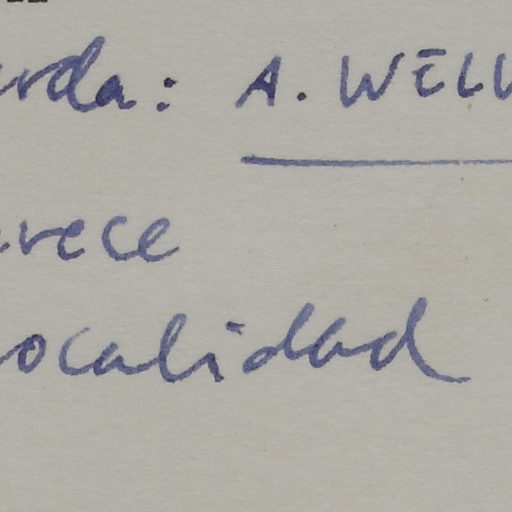 urda: A. WELW
arece
localidad